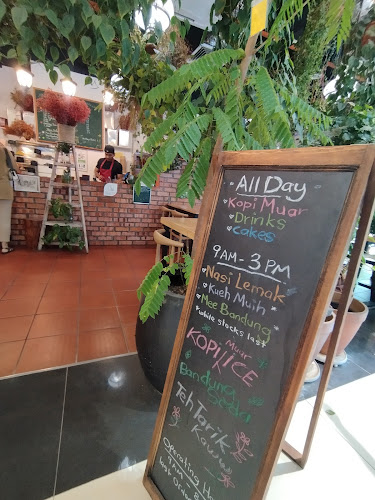 All Day
Kopi Muar
Drinks
cakes
9AM - 3PM
Nasi Lemak
Kueh Muih
Mee Bandung
*while stocks last*
Muar
KOPI/ICE
Bandung
Soda
Teh Tarik
Kawkaw
Operating Ho
9AM - 8